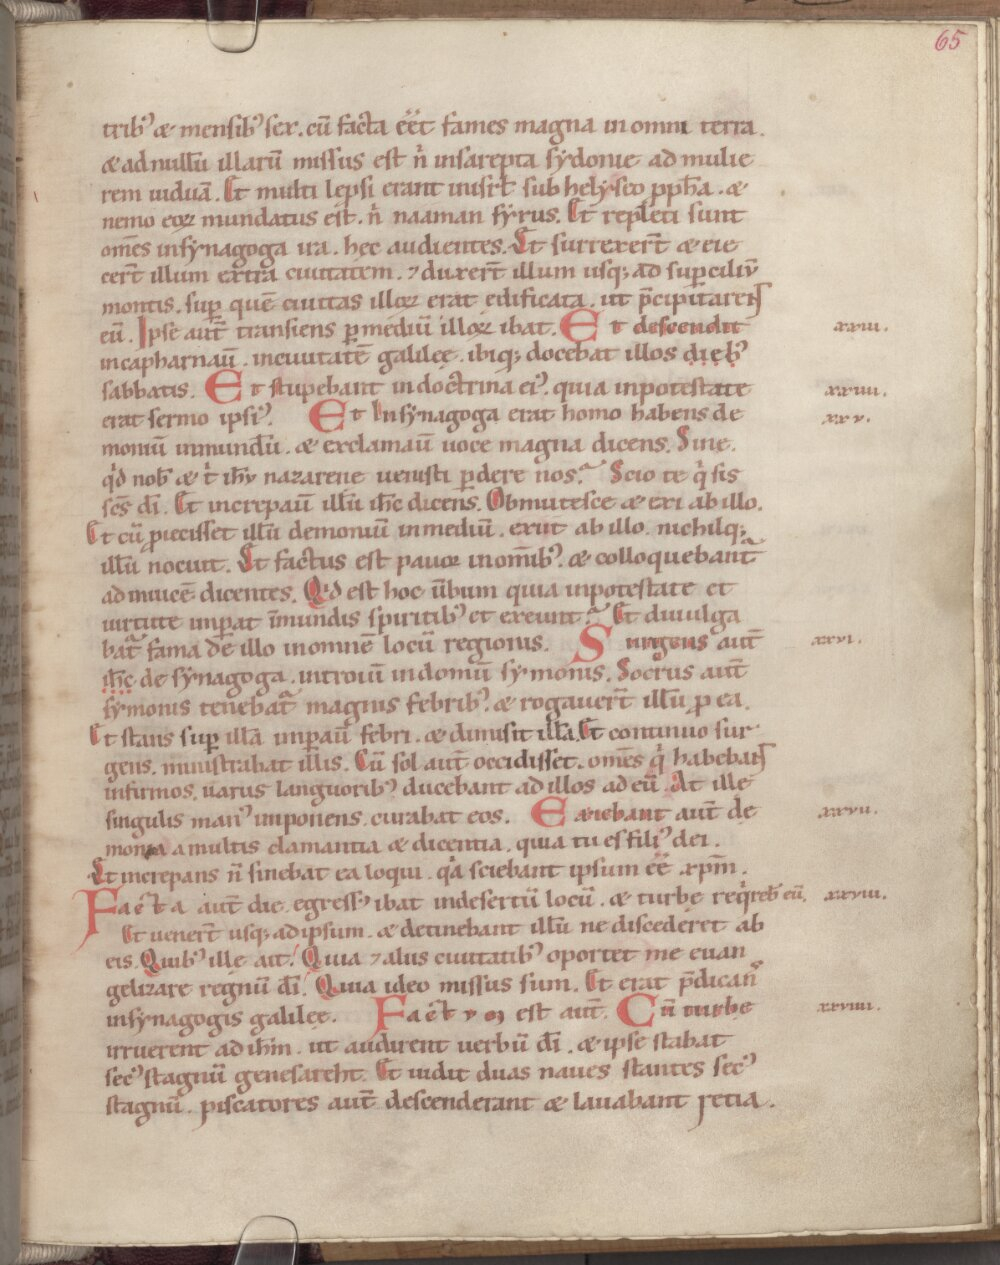 65
trib᾽ & mensib᾽ sex. cū facta eēt fames magna in omni terra.
& ad nullū illarū missus est n̄ insarepta sydonie ad mulie
rem uiduā. Et multi lepsi erant inisrl̄ sub helyseo ppha. &
nemo eoꝝ mundatus est. n̄ naaman syrus. Et repleti sunt
om̄es insynagoga ira. hec audientes. Et surrexer̄t & eie
cer̄t illum extra ciuitatem. ⁊ duxer̄t illum usq; ad supciliū
montis. sup quē ciuitas illoꝝ erat edificata. ut p̄cipitarent
eū. Ipse aut̄ transiens p mediū illoꝝ ibat. Et descendit xxiii.
incapharnaū. inciuitatē galilee. ibiq; docebat illos dieb᾽
sabbatis. Et stupebant indoctrina ei᾽. quia inpotestate xxiiii.
erat sermo ipsi᾽. Et Insynagoga erat homo habens de xxv.
monium inmundū. & exclamauit uoce magna dicens. Sine.
qd nob̄ & t̄ ihū nazarene uenisti pdere nos. Scio te q̄ sis
sc̄s dī. Et increpauit illū ihc̄ dicens. Obmutesce & exi ab illo.
Et cū piecisset illū demoniū inmediū. exiit ab illo. nichilq;
illū nocuit. Et factus est pauor inomīb᾽. & colloquebant̄
ad inuicē dicentes. Qd est hoc ūbum quia inpotestate et
uirtute impat īmundis spiritib᾽ et exeunt. Et diuulga
bat̄ fama de illo inomnē locū regionis. Surgens aut̄ xxvi.
ihc̄ de synagoga. introiuit indomū symonis. Socrus aut̄
symonis tenebat̄ magnis febrib᾽. & rogauer̄t illū p ea.
Et stans sup illā impauit febri. & dimisit illā. Et continuo sur
gens. ministrabat illis. Cū sol aut̄ occidisset. om̄es q̄ habebant
infirmos. uariis languorib᾽ ducebant ad illos ad eū. At ille
singulis man᾽ imponens. curabat eos. Exiebant aut̄ de xxvii.
monia a multis clamantia & dicentia. quia tu es fili᾽ dei.
Et increpans n̄ sinebat ea loqui. qa sciebant ipsum eē xpm̄.
Facta aut̄ die. egress᾽ ibat indesertū locū. & turbe req̄reb̄ eū. xxviii.
Et uener̄t usq; ad ipsum. & detinebant illū ne discederet ab
eis. Quib᾽ ille ait. Quia ⁊ aliis ciuitatib᾽ oportet me euan
gelizare regnū dī. Quia ideo missus sum. Et erat p̄dicans
insynagogis galilee. Factum est aut̄. Cū turbe xxviiii.
irruerent ad ihm̄. ut audirent uerbū dī. & ipse stabat
sec᾽ stagnū genesareht. Et uidit duas naues stantes sec᾽
stagnū. piscatores aut̄ descenderant & lauabant retia.